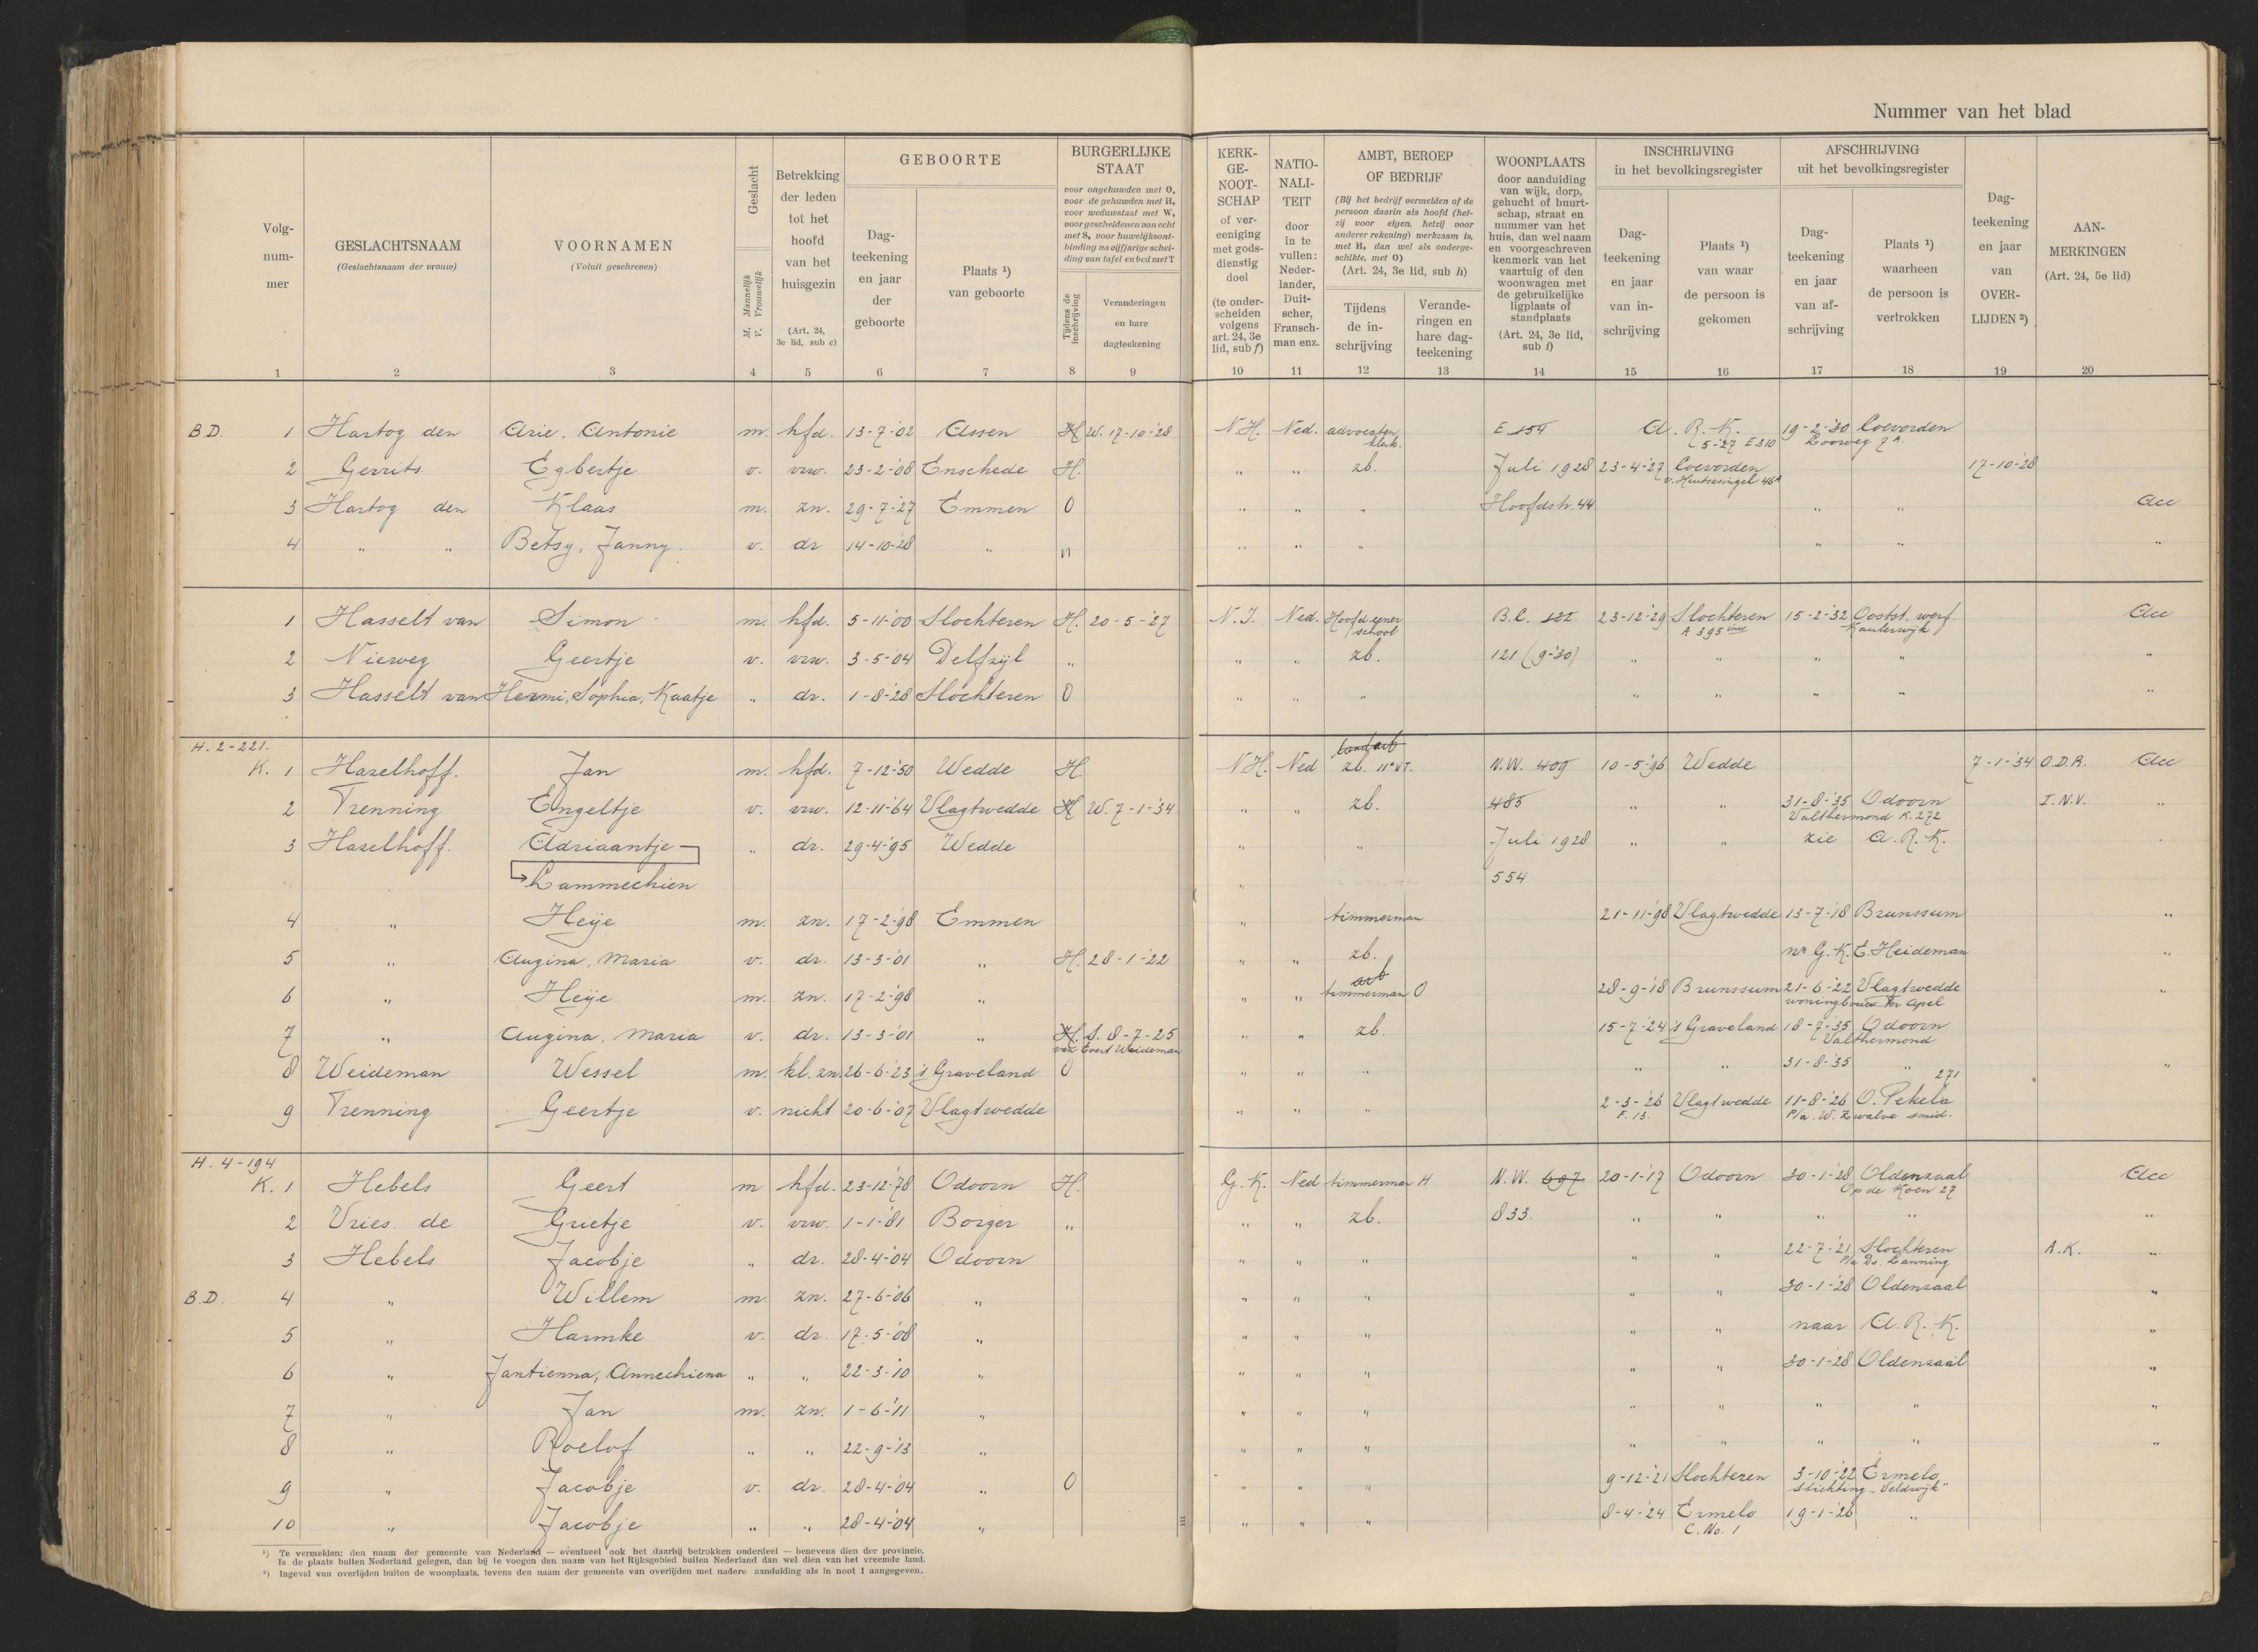 Nummer van het blad
Volg-
num-
mer
GESLACHTSNAAM
(Geslachtsnaam der vrouw)
VOORNAMEN
(Voluit geschreven)
Geslacht
M. Mannelijk
V. Vrouwelijk
Betrekking
der leden
tot het
hoofd
van het
huisgezin
(Art. 24,
3e lid, sub c)
GEBOORTE
Dag-
teekening
en jaar
der
geboorte
Plaats ¹)
van geboorte
BURGERLIJKE
STAAT
voor ongehuwden met O,
voor de gehuwden met H,
voor weduwstaat met W,
voor gescheidenen van echt
met S, voor huwelijksont-
binding na vijfjarige schei-
ding van tafel en bed met T
Tijdens de
inschrijving
Veranderingen
en hare
dagteekening
KERK-
GE-
NOOT-
SCHAP
of ver-
eeniging
met gods-
dienstig
doel
(te onder-
scheiden
volgens
art. 24, 3e
lid, sub f)
NATIO-
NALI-
TEIT
door
in te
vullen:
Neder-
lander,
Duit-
scher,
Fransch-
man enz.
AMBT, BEROEP
OF BEDRIJF
(Bij het bedrijf vermelden of de
persoon daarin als hoofd (het-
zij voor eigen, hetzij voor
anderer rekening) werkzaam is,
met H, dan wel als onderge-
schikte, met O)
(Art. 24, 3e lid, sub h)
Tijdens
de in-
schrijving
Verande-
ringen en
hare dag-
teekening
WOONPLAATS
door aanduiding
van wijk, dorp,
gehucht of buurt-
schap, straat en
nummer van het
huis, dan wel naam
en voorgeschreven
kenmerk van het
vaartuig of den
woonwagen met
de gebruikelijke
ligplaats of
standplaats
(Art. 24, 3e lid,
sub i)
INSCHRIJVING
in het bevolkingsregister
Dag-
teekening
en jaar
van in-
schrijving
Plaats ¹)
van waar
de persoon is
gekomen
AFSCHRIJVING
uit het bevolkingsregister
Dag-
teekening
en jaar
van af-
schrijving
Plaats ¹)
waarheen
de persoon is
vertrokken
Dag-
teekening
en jaar
van
OVER-
LIJDEN ²)
AAN-
MERKINGEN
(Art. 24, 5e lid)
1 2 3 4 5 6 7 8 9 10 11 12 13 14 15 16 17 18 19 20
B.D. 1 Hartog den Arie, Antonie m. hfd. 13-7-'02 Assen H W. 17-10-'28 N.H. Ned. advocaten E 154 A. R. K. 19-2-'30 Coevorden
klerk. 5-'27 E 310 Loorweg 7A.
2 Gerrits Egbertje v. vrw. 23-2-'08 Enschede H. " " zb. Juli 1928 23-4-'27 Coevorden 17-10-'28
v. Heutszsingel 46A
3 Hartog den Klaas m. zn. 29-7-'27 Emmen O " " " Hoofdstr. 44 " " Acc
4 " " Betsy, Janny. v. dr 14-10-'28 " " " " " " " "
1 Hasselt van Simon m. hfd. 5-11-'00 Slochteren H. 20-5-'27 N.I. Ned. Hoofd eener B.C. 122 23-12-'29 Slochteren 15-2-'32 Ooststellingwerf. Acc
school A 395
2 Nieweg Geertje v. vrw. 3-5-'04 Delfzijl " " " zb. 121 (9-'30) " " " " "
3 Hasselt van Hermi, Sophia, Kaatje " dr. 1-8-'28 Slochteren O " " " " " " " "
H. 2-221.
K. 1 Hazelhoff. Jan m. hfd. 7-12-'50 Wedde H. N.H. Ned landarb zb. N.W. 409 10-5-'96 Wedde 7-1-'34 O.D.R. Acc
2 Trenning Engeltje v. vrw. 12-11-'64 Vlagtwedde H W. 7-1-'34 " " zb. 485 " " 31-8-'35 Odoorn I.N.V. "
Valthermond K. 272
3 Hazelhoff. Adriaantje " dr. 29-4-'95 Wedde " " Juli 1928 " " zie A. R. K.
Lammechien " 554
4 " Heije m. zn. 17-2-'98 Emmen " timmerman 21-11-'98 Vlagtwedde 13-7-'18 Brunssum "
5 " Augina, Maria v. dr. 13-3-'01 " H. 28-1-'22 " " zb. nr G.K. E. Heideman "
arb
6 " Heije m. zn. 17-2-'98 " " " timmerman O 28-9-'18 Brunssum 21-6-'22 Vlagtwedde "
woningbouw Ter Apel
7 " Augina, Maria v. dr. 13-3-'01 " H. S. 8-7-25 " " zb. 15-7-'24 's Graveland 18-7-'35 Odoorn
van Evert Weideman Valthermond
8 Weideman Wessel m. kl. zn. 26-6-'23 's Graveland O " " " " " 31-8-'35 " "
271
9 Trenning Geertje v. nicht 20-6-'07 Vlagtwedde " " " 2-3-'26 Vlagtwedde 11-8-'26 O. Pekela
F. 13. P/a. W. Zwalve smid.
H. 4-194
K. 1 Hebels Geert m hfd. 23-12-'78 Odoorn H. G.K. Ned timmerman H N.W. 697 20-1-'17 Odoorn 30-1-'28 Oldenzaal Acc
Op de Koen 27
2 Vries de Grietje v. vrw. 1-1-'81 Borger " " " zb. 833. " " " " "
3 Hebels Jacobje " dr. 28-4-'04 Odoorn " " " " " 22-7-'21 Slochteren A.K. "
P/a Ds. Lanning
B.D. 4 " Willem m. zn. 27-6-'06 " " " " " " 30-1-'28 Oldenzaal "
5 " Harmke v. dr. 17-5-'08 " " " " " " naar A. R. K. "
6 " Jantienna, Annechiena " " 22-3-'10 " " " " " " 30-1-'28 Oldenzaal "
7 " Jan m. zn. 1-6-'11 " " " " " " " " "
8 " Roelof " " 22-9-'13 " " " " " " " " "
9 " Jacobje v. dr. 28-4-'04 " O " " " 9-12-'21 Slochteren 3-10-'22 Ermelo
Stichting „Veldwijk"
10 " Jacobje " " 28-4-'04 " " " " 8-4-'24 Ermelo 19-1-'26 "
C. No. 1
¹) Te vermelden: den naam der gemeente van Nederland — eventueel ook het daarbij betrokken onderdeel — benevens dien der provincie.
Is de plaats buiten Nederland gelegen, dan bij te voegen den naam van het Rijksgebied buiten Nederland dan wel dien van het vreemde land.
²) Ingeval van overlijden buiten de woonplaats, tevens den naam der gemeente van overlijden met nadere aanduiding als in noot 1 aangegeven.